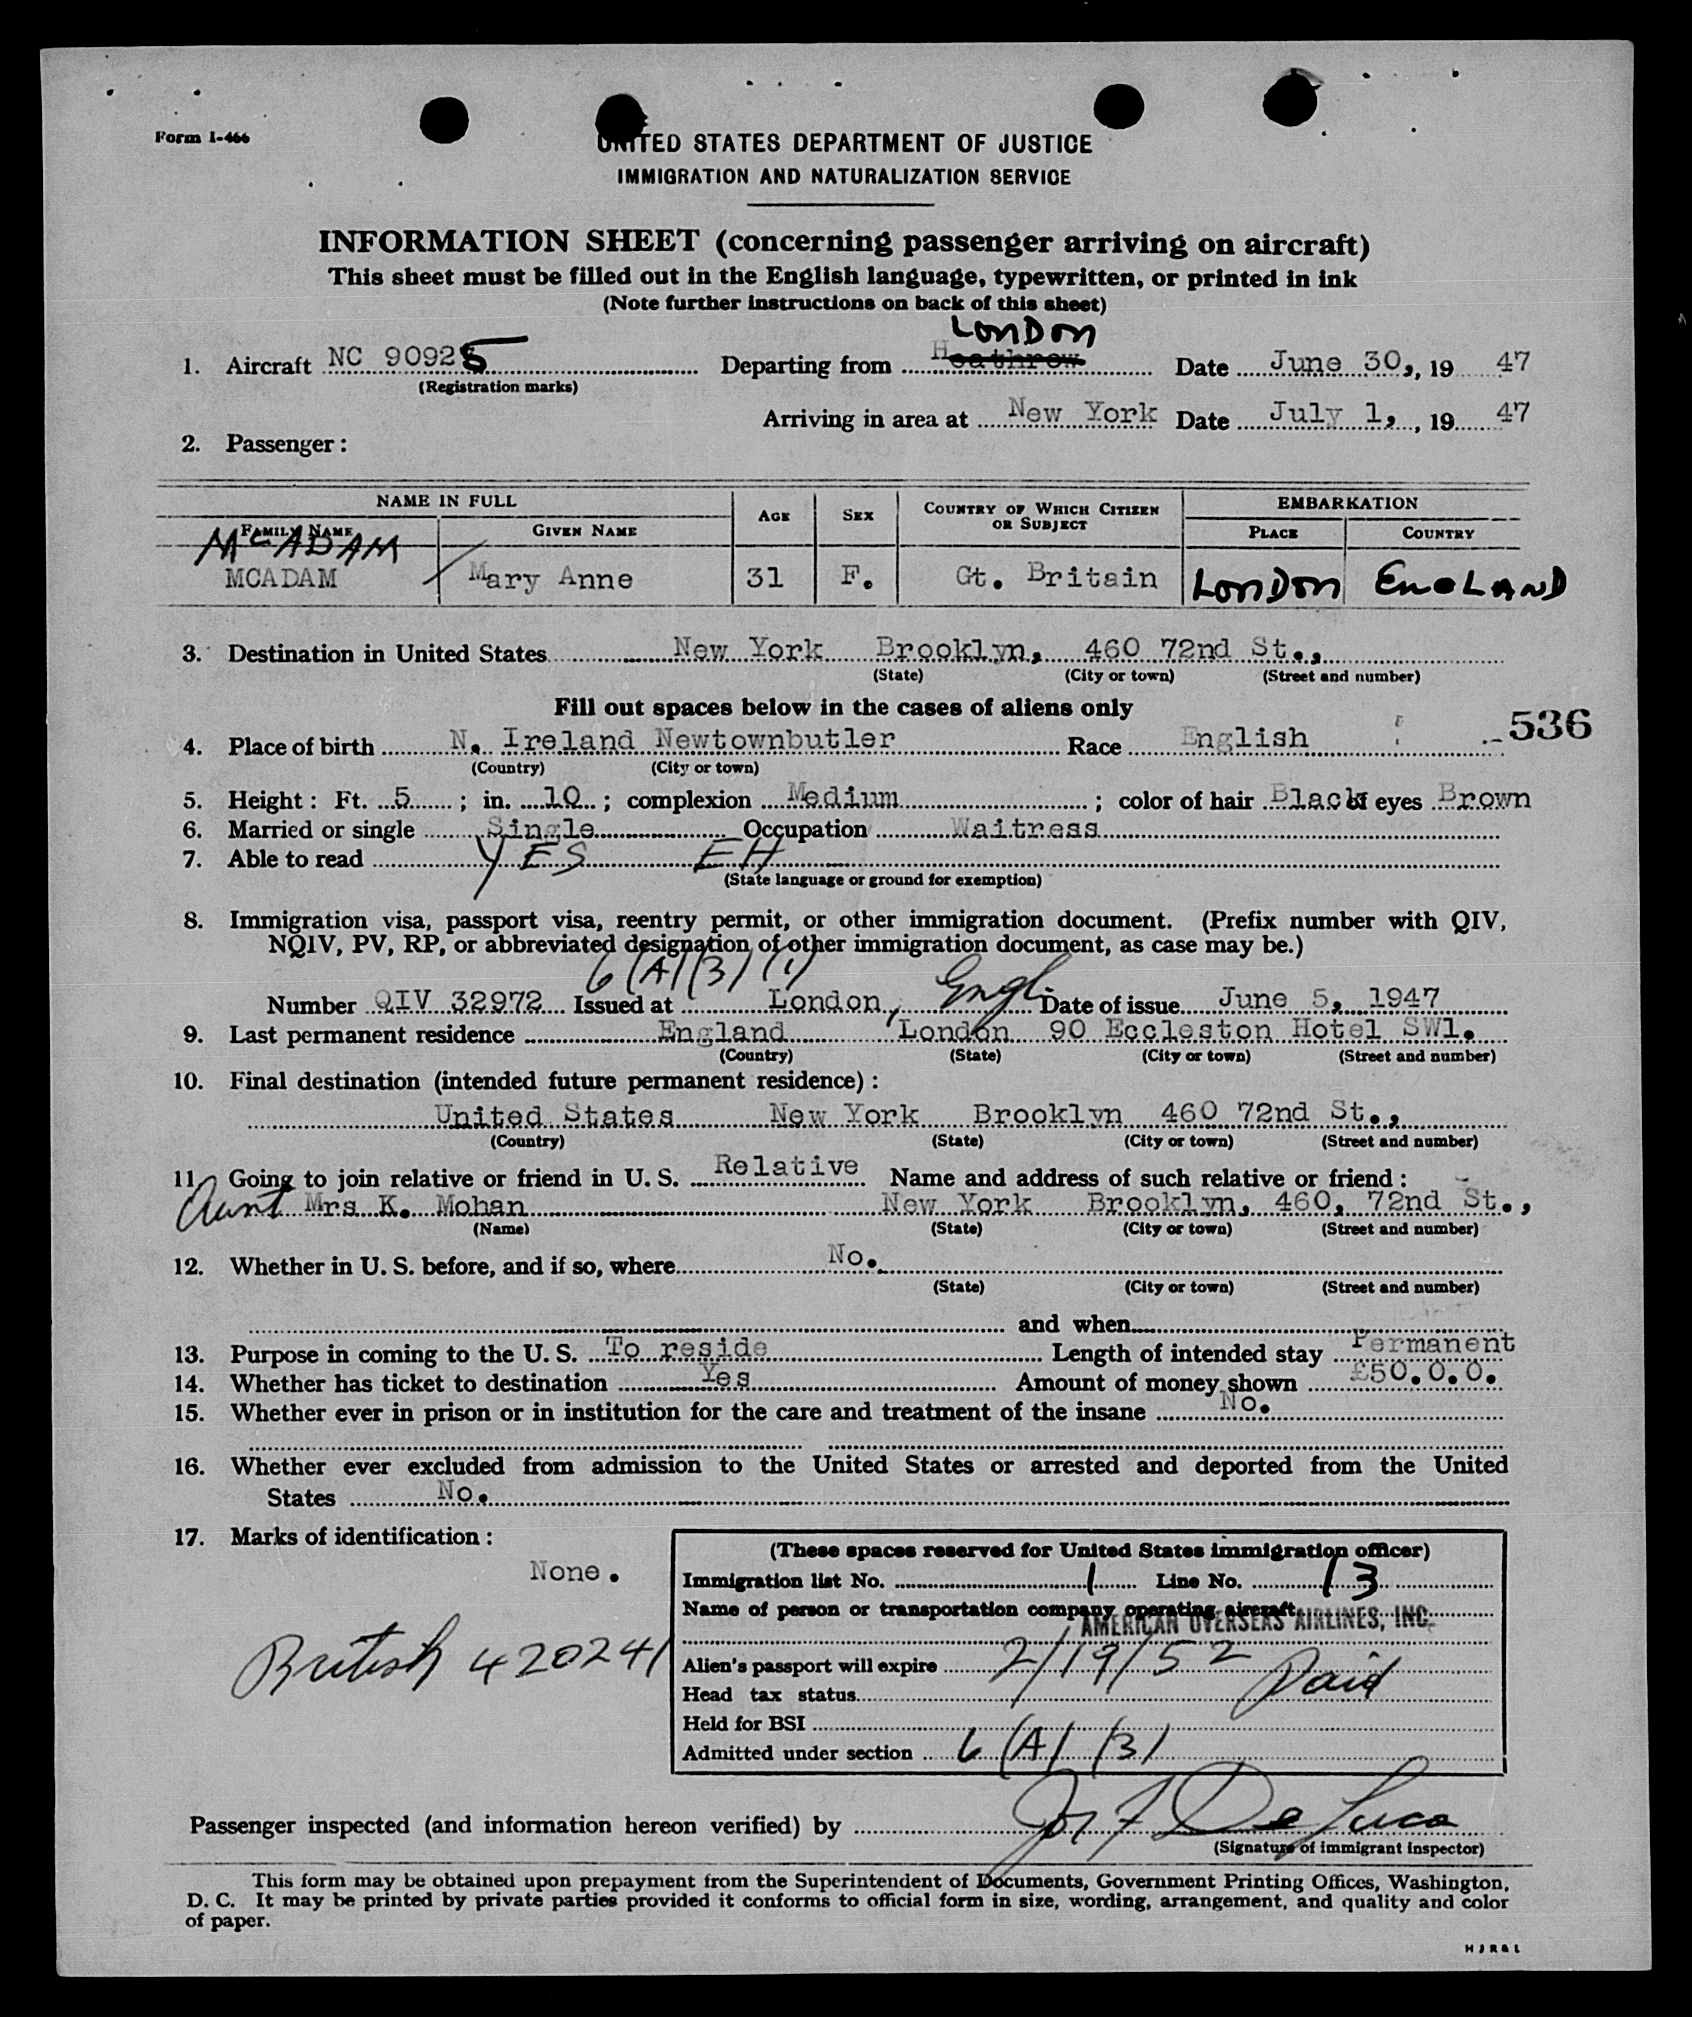 Form I-466
UNITED STATES DEPARTMENT OF JUSTICE
IMMIGRATION AND NATURALIZATION SERVICE
INFORMATION SHEET (concerning passenger arriving on aircraft)
This sheet must be filled out in the English language, typewritten, or printed in ink
(Note further instructions on back of this sheet)
LONDON
1. Aircraft NC 90925 Departing from Heathrow Date June 30, , 19 47
(Registration marks)
Arriving in area at New York Date July 1, , 19 47
2. Passenger:
NAME IN FULL AGE SEX COUNTRY OF WHICH CITIZEN OR SUBJECT EMBARKATION
FAMILY NAME GIVEN NAME PLACE COUNTRY
MCADAM
MCADAM Mary Anne 31 F. Gt. Britain LONDON ENGLAND
3. Destination in United States New York Brooklyn, 460 72nd St.,
(State) (City or town) (Street and number)
Fill out spaces below in the cases of aliens only
-536
4. Place of birth N. Ireland Newtownbutler Race English
(Country) (City or town)
5. Height: Ft. 5 ; in. 10 ; complexion Medium ; color of hair Black eyes Brown
6. Married or single Single Occupation Waitress
7. Able to read YES EH
(State language or ground for exemption)
8. Immigration visa, passport visa, reentry permit, or other immigration document. (Prefix number with QIV,
NQIV, PV, RP, or abbreviated designation of other immigration document, as case may be.)
6 (A) (3) (1)
Number QIV 32972 Issued at London, Engl Date of issue June 5, 1947
9. Last permanent residence England London 90 Eccleston Hotel SW1.
(Country) (State) (City or town) (Street and number)
10. Final destination (intended future permanent residence):
United States New York Brooklyn 460 72nd St.,
(Country) (State) (City or town) (Street and number)
11. Going to join relative or friend in U. S. Relative Name and address of such relative or friend:
Aunt Mrs K. Mohan New York Brooklyn, 460, 72nd St.,
(Name) (State) (City or town) (Street and number)
12. Whether in U. S. before, and if so, where No.
(State) (City or town) (Street and number)
and when
13. Purpose in coming to the U. S. To reside Length of intended stay Permanent
14. Whether has ticket to destination Yes Amount of money shown £50.0.0.
15. Whether ever in prison or in institution for the care and treatment of the insane No.
16. Whether ever excluded from admission to the United States or arrested and deported from the United
States No.
17. Marks of identification:
None.
British 420241
(These spaces reserved for United States immigration officer)
Immigration list No. 1 Line No. 13
Name of person or transportation company operating aircraft
AMERICAN OVERSEAS AIRLINES, INC.
Alien's passport will expire 2/19/52
Head tax status Paid
Held for BSI
Admitted under section 6 (A) (3)
Passenger inspected (and information hereon verified) by Jos F De Luca
(Signature of immigrant inspector)
This form may be obtained upon prepayment from the Superintendent of Documents, Government Printing Offices, Washington,
D. C. It may be printed by private parties provided it conforms to official form in size, wording, arrangement, and quality and color
of paper.
H J R & L